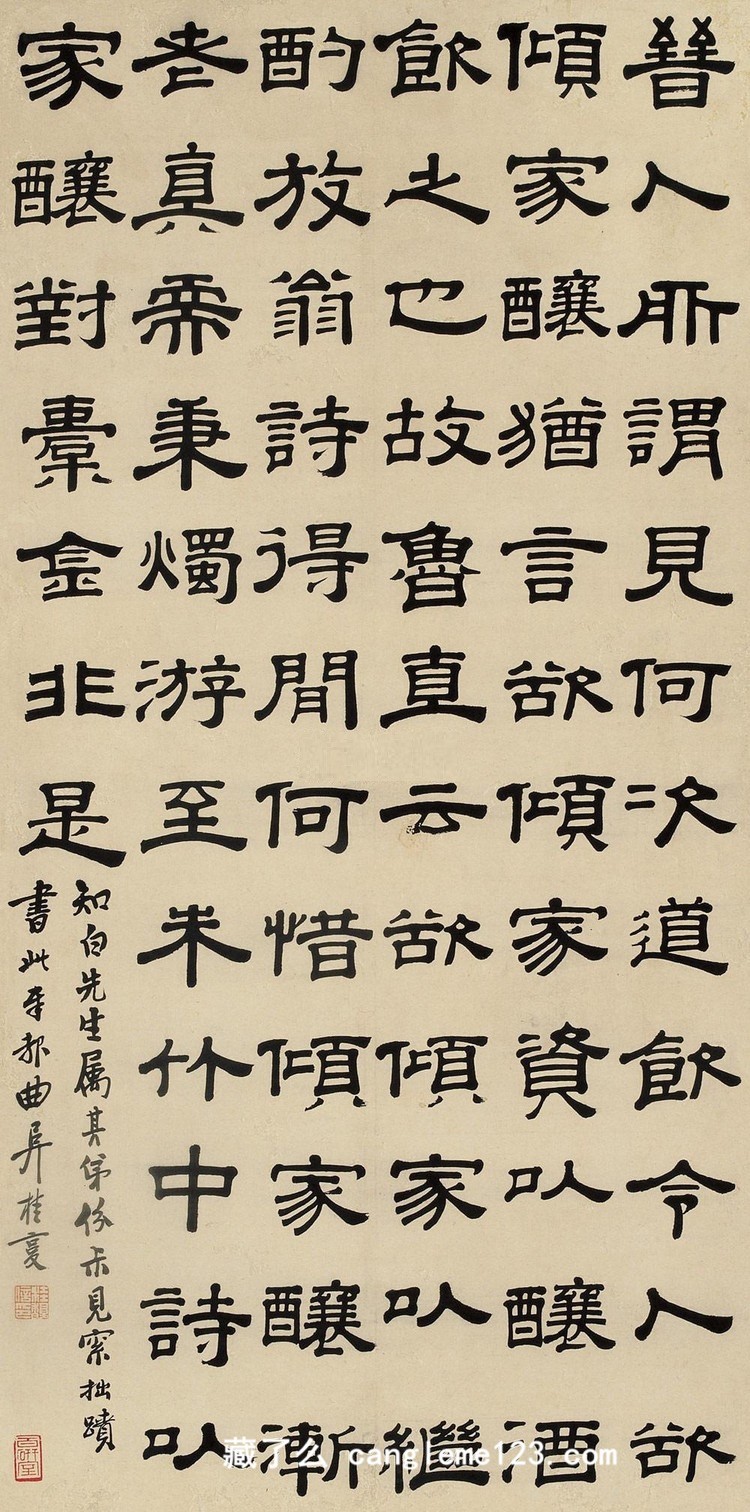 晉人所謂見何次道飲令人欲
傾家釀猶言欲傾家資以釀酒
飲之也故魯直云欲傾家以繼
酌放翁詩得閒何惜傾家釀漸
老真需秉燭游至朱竹中詩以
家釀對橐金非是
知白先生属其弟份見索拙蹟
書此奉報曲阜桂馥
藏了么 cangleme123.com